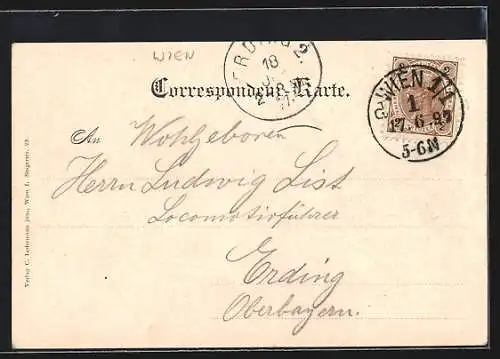 WIEN
ERDING 2.
18
Correspondenz-Karte.
WIEN 1/1
1
17.6.97
5-6N
An Wohlgeboren
Herrn Ludwig List
Locomotivführer
Erding
Oberbayern.
Verlag C. Ledermann jun., Wien I.